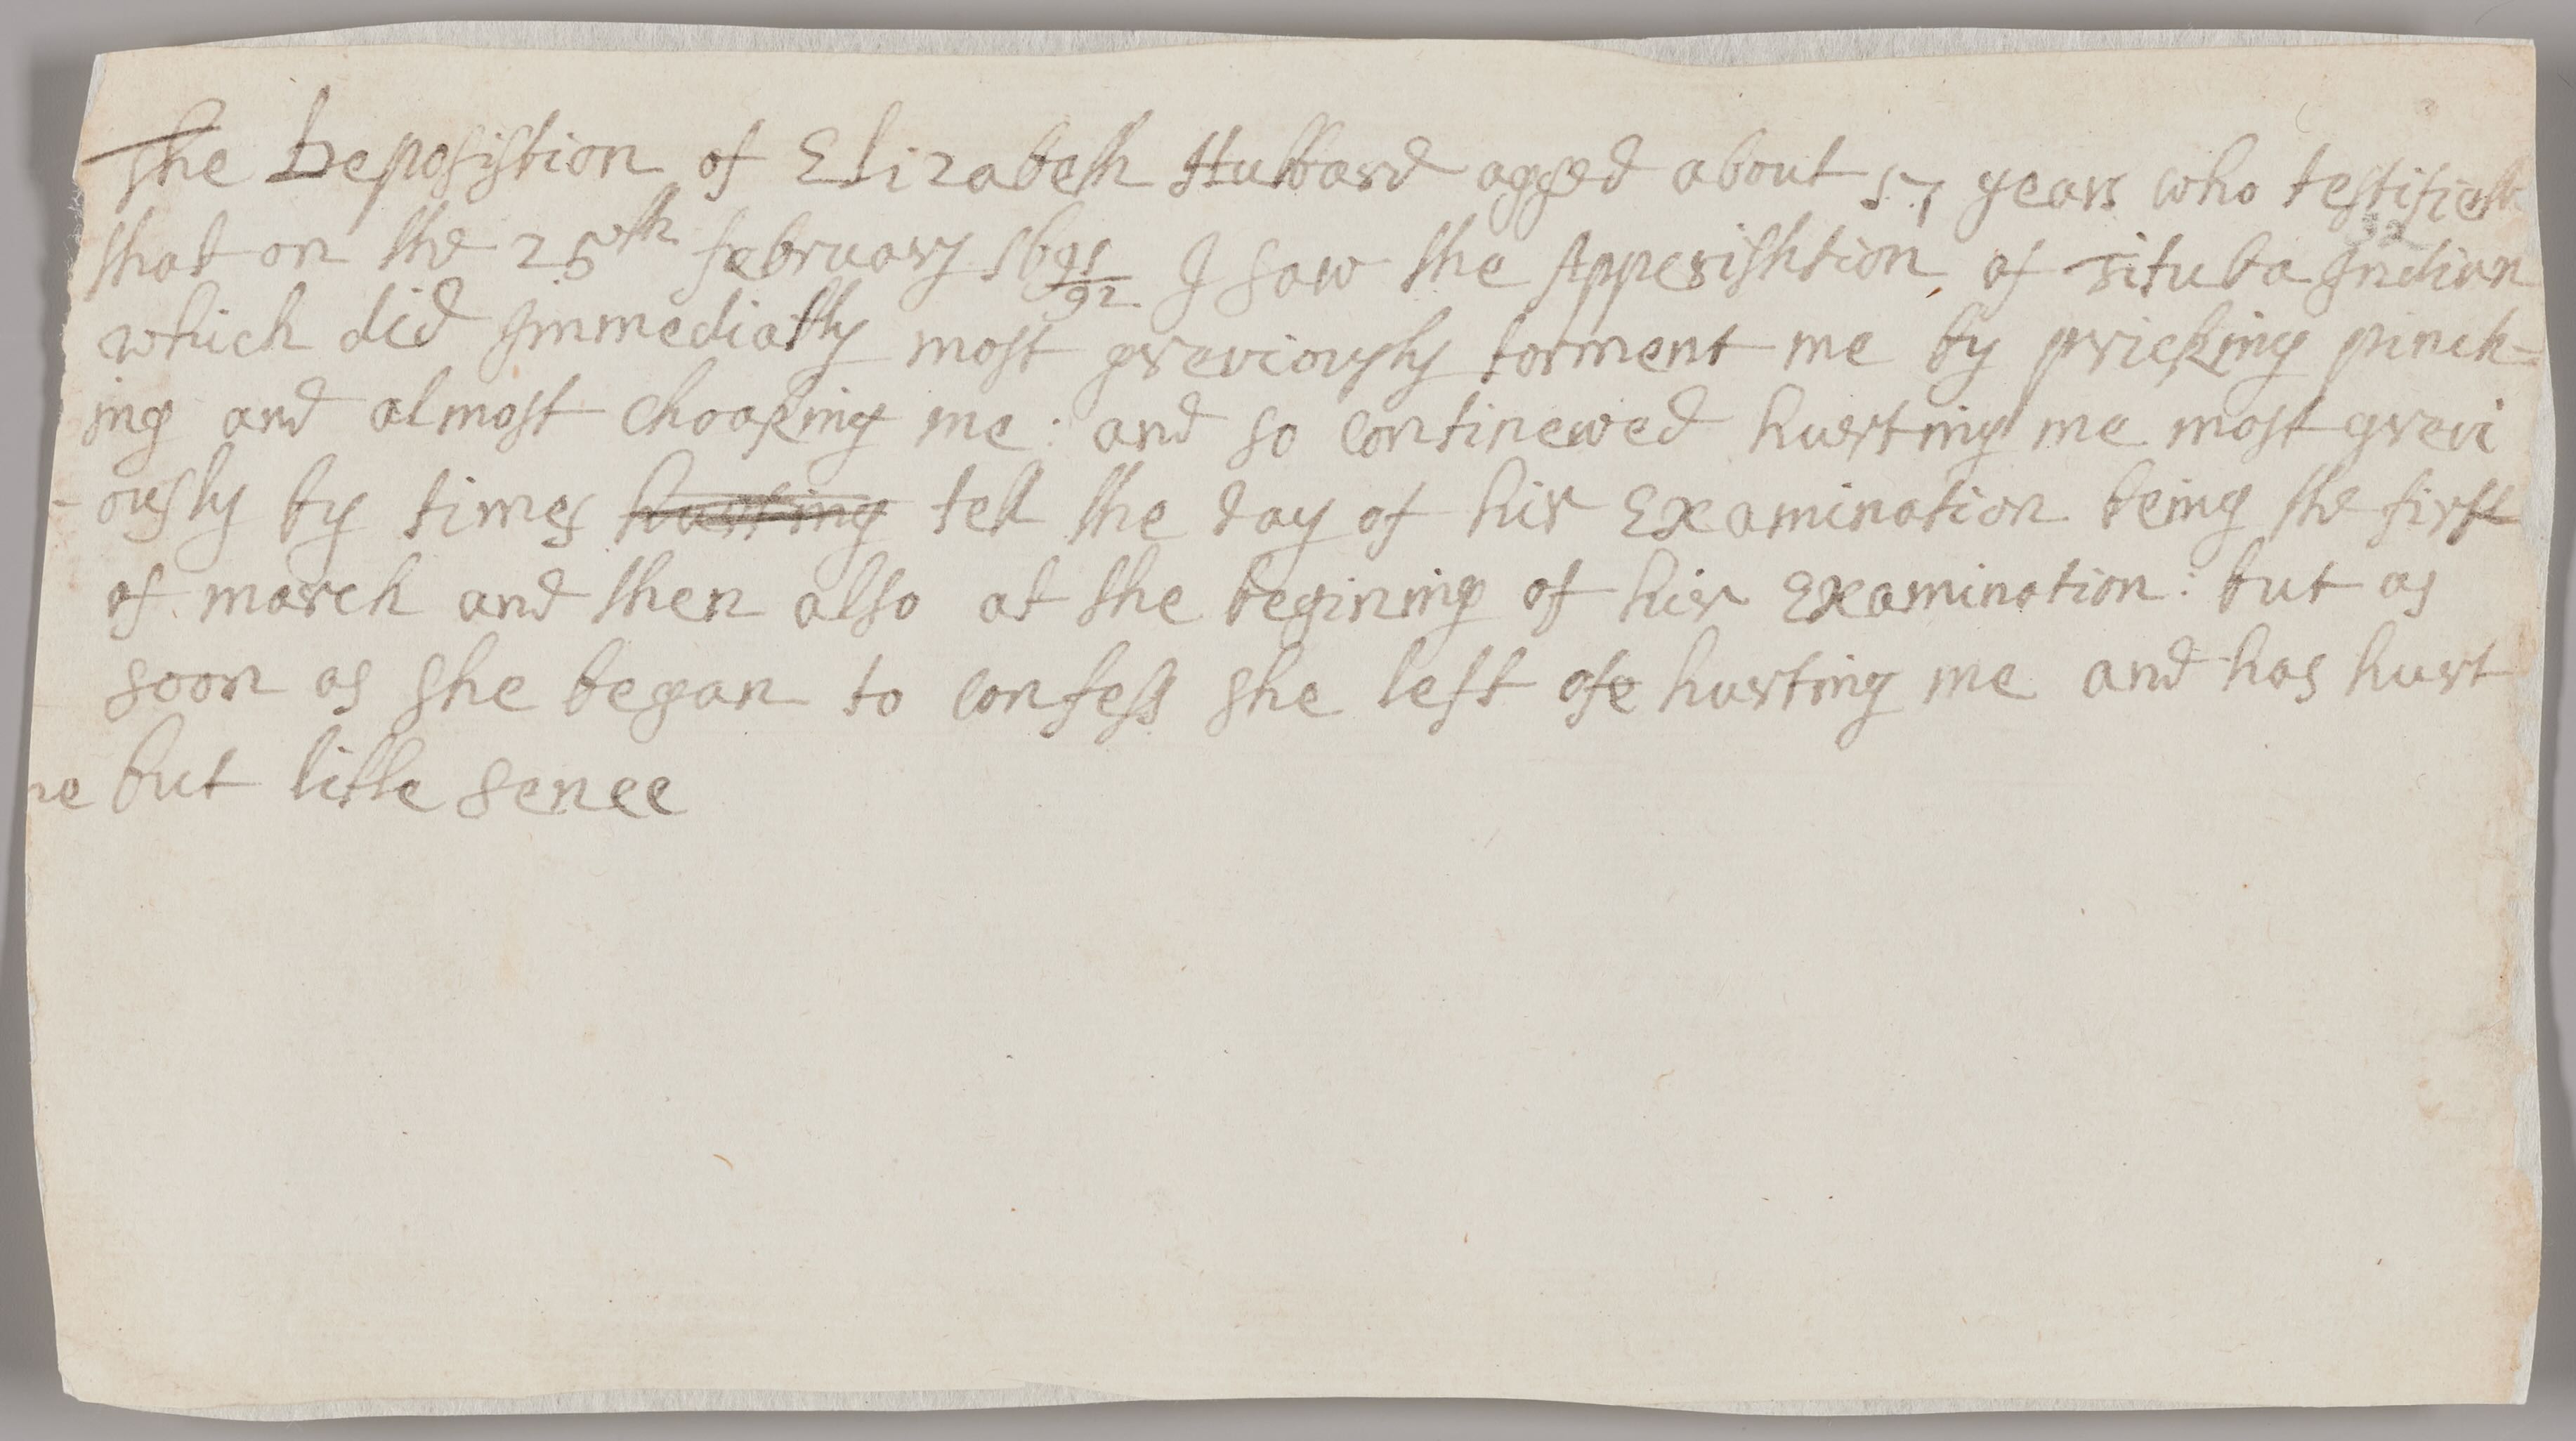 The Deposistion of Elizabeth Hubbard agged about 17 years who testifieth
that on the 25th february 1691/92 I saw the Apperishtion of Tituba Indian
which did Immediatly most greviously torment me by pricking pinch-
ing and almost choaking me: and so continewed hurting me most grevi
-ously by times hurting tell the day of hir Examination being the first
of march and then also at the begining of hir Examination: but as
soon as she began to confess she left ofe hurting me and has hurt
me but litle sence